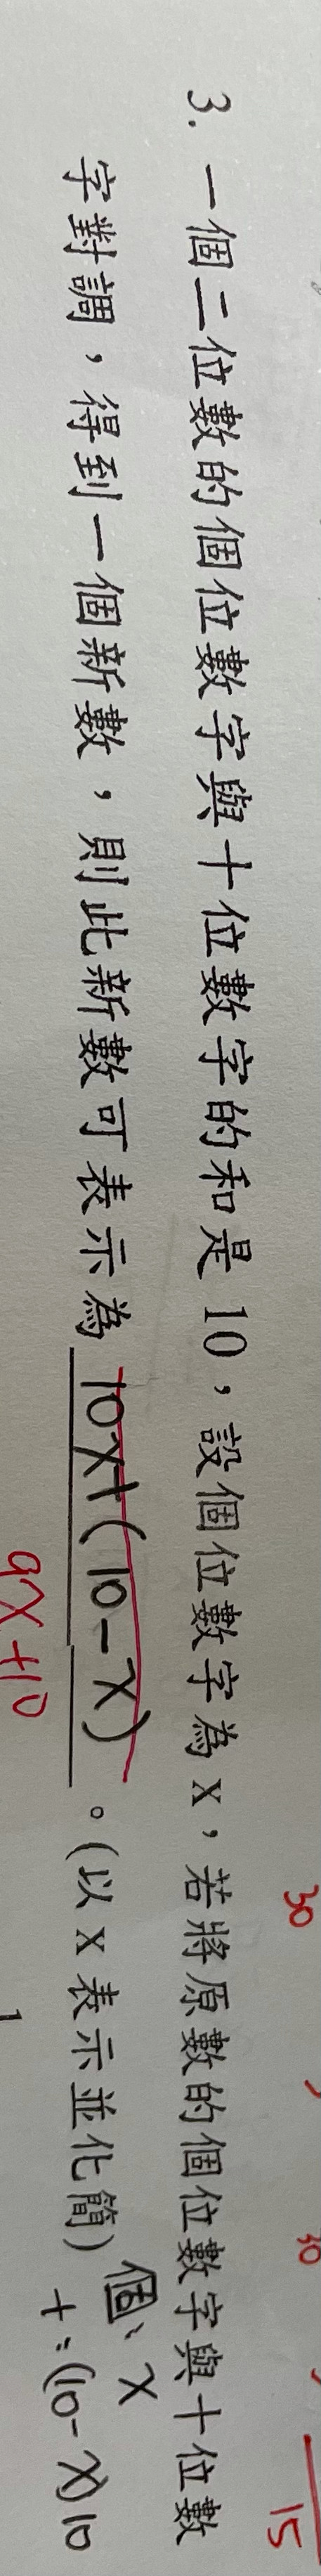 30
10
15
3. 一個二位數的個位數字與十位數字的和是 10，設個位數字為 x，若將原數的個位數字與十位數
字對調，得到一個新數，則此新數可表示為 10x+(10-x) 。(以 x 表示並化簡)
個: x
十: (10-x)10
9x+10